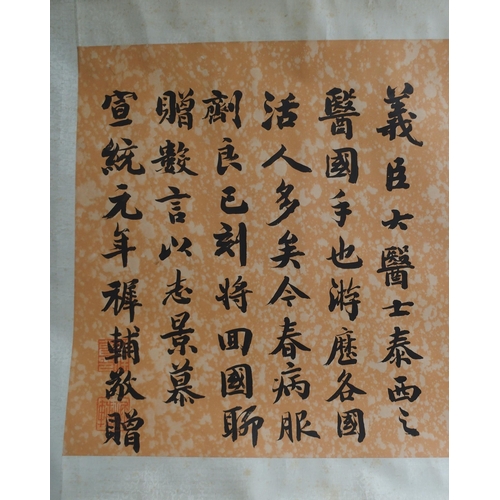 義臣大醫士泰西之
醫國手也游歷各國
活人多矣今春病服
劑良已刻將回國聊
贈數言以志景慕
宣統元年穉輔敬贈